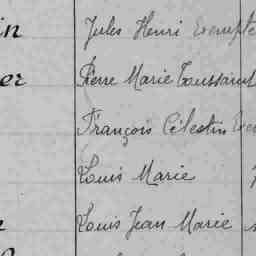 in Jules Henri Exempte
er Pierre Marie Toussaint
François Célestin
Louis Marie
Louis Jean Marie